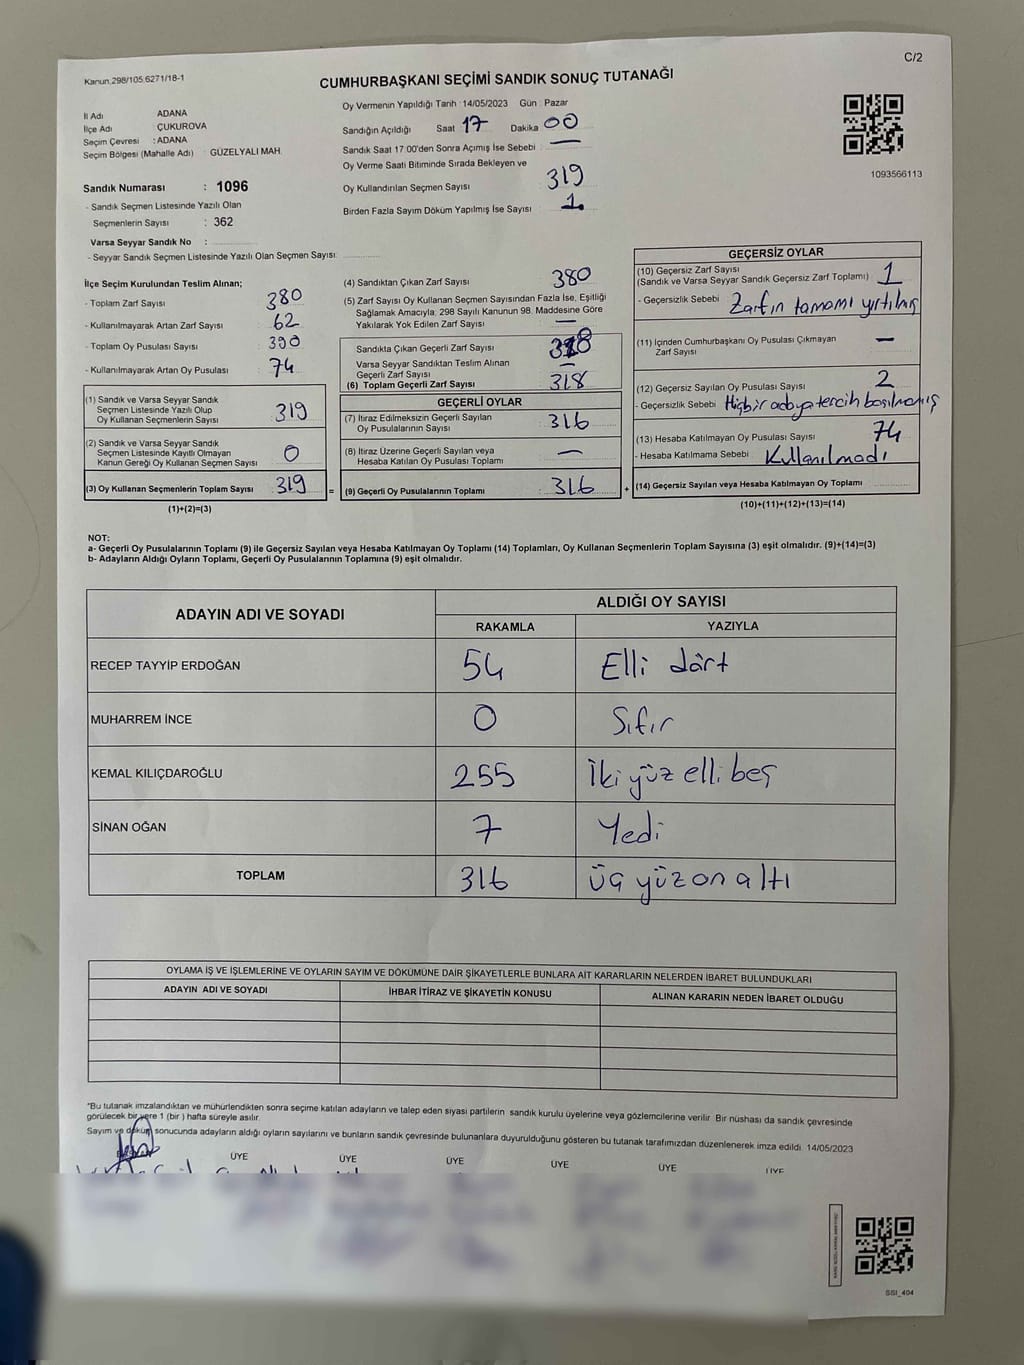 C/2
Kanun:298/105;6271/18-1
CUMHURBAŞKANI SEÇİMİ SANDIK SONUÇ TUTANAĞI
İl Adı ADANA
İlçe Adı ÇUKUROVA
Seçim Çevresi :ADANA
Seçim Bölgesi (Mahalle Adı) GÜZELYALI MAH.
Oy Vermenin Yapıldığı Tarih : 14/05/2023 Gün : Pazar
Sandığın Açıldığı Saat 17 Dakika 00
Sandık Saat 17:00'den Sonra Açımış İse Sebebi : —
Oy Verme Saati Bitiminde Sırada Bekleyen ve
Oy Kullandırılan Seçmen Sayısı 319
Birden Fazla Sayım Döküm Yapılmış İse Sayısı : 1.
1093566113
Sandık Numarası : 1096
- Sandık Seçmen Listesinde Yazılı Olan
Seçmenlerin Sayısı : 362
Varsa Seyyar Sandık No :
- Seyyar Sandık Seçmen Listesinde Yazılı Olan Seçmen Sayısı:
İlçe Seçim Kurulundan Teslim Alınan;
- Toplam Zarf Sayısı : 380
- Kullanılmayarak Artan Zarf Sayısı : 62
- Toplam Oy Pusulası Sayısı : 390
- Kullanılmayarak Artan Oy Pusulası : 74
(1) Sandık ve Varsa Seyyar Sandık
Seçmen Listesinde Yazılı Olup
Oy Kullanan Seçmenlerin Sayısı : 319
(2) Sandık ve Varsa Seyyar Sandık
Seçmen Listesinde Kayıtlı Olmayan
Kanun Gereği Oy Kullanan Seçmen Sayısı : 0
(3) Oy Kullanan Seçmenlerin Toplam Sayısı : 319 =
(1)+(2)=(3)
(4) Sandıktan Çıkan Zarf Sayısı : 380
(5) Zarf Sayısı Oy Kullanan Seçmen Sayısından Fazla İse, Eşitliği
Sağlamak Amacıyla, 298 Sayılı Kanunun 98. Maddesine Göre
Yakılarak Yok Edilen Zarf Sayısı : —
Sandıkta Çıkan Geçerli Zarf Sayısı : 318
Varsa Seyyar Sandıktan Teslim Alınan
Geçerli Zarf Sayısı : —
(6) Toplam Geçerli Zarf Sayısı : 318
GEÇERLİ OYLAR
(7) İtiraz Edilmeksizin Geçerli Sayılan
Oy Pusulalarının Sayısı : 316
(8) İtiraz Üzerine Geçerli Sayılan veya
Hesaba Katılan Oy Pusulası Toplamı : —
(9) Geçerli Oy Pusulalarının Toplamı : 316 +
GEÇERSİZ OYLAR
(10) Geçersiz Zarf Sayısı
(Sandık ve Varsa Seyyar Sandık Geçersiz Zarf Toplamı) : 1
- Geçersizlik Sebebi : Zarfın tamamı yırtılmış
(11) İçinden Cumhurbaşkanı Oy Pusulası Çıkmayan
Zarf Sayısı : —
(12) Geçersiz Sayılan Oy Pusulası Sayısı : 2
- Geçersizlik Sebebi : Hiçbir adaya tercih basılmamış
(13) Hesaba Katılmayan Oy Pusulası Sayısı : 74
- Hesaba Katılmama Sebebi : Kullanılmadı
(14) Geçersiz Sayılan veya Hesaba Katılmayan Oy Toplamı :
(10)+(11)+(12)+(13)=(14)
NOT:
a- Geçerli Oy Pusulalarının Toplamı (9) ile Geçersiz Sayılan veya Hesaba Katılmayan Oy Toplamı (14) Toplamları, Oy Kullanan Seçmenlerin Toplam Sayısına (3) eşit olmalıdır. (9)+(14)=(3)
b- Adayların Aldığı Oyların Toplamı, Geçerli Oy Pusulalarının Toplamına (9) eşit olmalıdır.
ADAYIN ADI VE SOYADI ALDIĞI OY SAYISI
RAKAMLA YAZIYLA
RECEP TAYYİP ERDOĞAN 54 Elli dört
MUHARREM İNCE 0 Sıfır
KEMAL KILIÇDAROĞLU 255 İki yüz elli beş
SİNAN OĞAN 7 Yedi
TOPLAM 316 Üç yüz on altı
OYLAMA İŞ VE İŞLEMLERİNE VE OYLARIN SAYIM VE DÖKÜMÜNE DAİR ŞİKAYETLERLE BUNLARA AİT KARARLARIN NELERDEN İBARET BULUNDUKLARI
ADAYIN ADI VE SOYADI İHBAR İTİRAZ VE ŞİKAYETİN KONUSU ALINAN KARARIN NEDEN İBARET OLDUĞU
*Bu tutanak imzalandıktan ve mühürlendikten sonra seçime katılan adayların ve talep eden siyasi partilerin sandık kurulu üyelerine veya gözlemcilerine verilir. Bir nüshası da sandık çevresinde
görülecek bir yere 1 (bir) hafta süreyle asılır.
Sayım ve döküm sonucunda adayların aldığı oyların sayılarını ve bunların sandık çevresinde bulunanlara duyurulduğunu gösteren bu tutanak tarafımızdan düzenlenerek imza edildi. 14/05/2023
ÜYE ÜYE ÜYE ÜYE ÜYE ÜYE
SSI_404